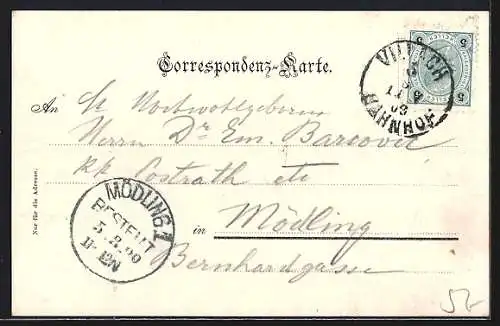 Correspondenz-Karte.
VILLACH
BAHNHOF
5
An Sr Hochwohlgeboren
Herrn Dr Em. Barcovic
kk Postrath etc
in Mödling
Bernhardgasse
MÖDLING 1
BESTELLT
Nur für die Adresse.